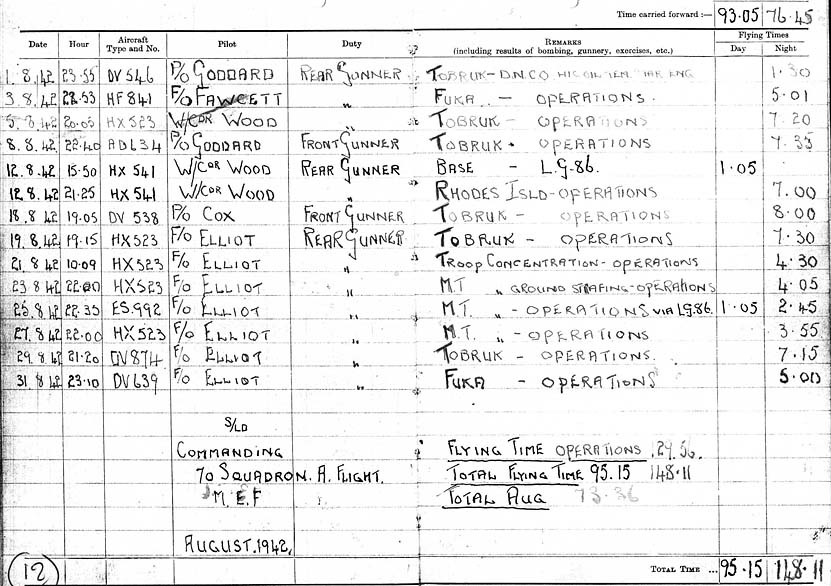 Time carried forward :— 93·05 76·45
Date Hour Aircraft Type and No. Pilot Duty REMARKS (including results of bombing, gunnery, exercises, etc.) Flying Times Day Night
1.8.42 23·55 DV546 P/O GODDARD REAR GUNNER TOBRUK - D.N.CO ENG 1·30
3.8.42 22·53 HF841 F/O FAWCETT " FUKA - OPERATIONS. 5·01
5.8.42 20·05 HX523 W/CDR WOOD " TOBRUK - OPERATIONS 7·20
8.8.42 22·40 AD634 P/O GODDARD FRONT GUNNER TOBRUK - OPERATIONS 7·35
12.8.42 15·50 HX541 W/CDR WOOD REAR GUNNER BASE - L.G-86. 1·05
12.8.42 21·25 HX541 W/CDR WOOD RHODES ISLD-OPERATIONS 7·00
18.8.42 19·05 DV538 P/O COX FRONT GUNNER TOBRUK - OPERATIONS 8·00
19.8.42 19·15 HX523 F/O ELLIOT REAR GUNNER TOBRUK - OPERATIONS 7·30
21.8.42 10·09 HX523 F/O ELLIOT " TROOP CONCENTRATION - OPERATIONS 4·30
23.8.42 22·00 HX523 F/O ELLIOT " M.T " GROUND STRAFING-OPERATIONS 4·05
25.8.42 22·35 ES.992 F/O ELLIOT " M.T. " - OPERATIONS VIA LG.86. 1·05 2·45
27.8.42 22·00 HX523 F/O ELLIOT " M.T. " - OPERATIONS 3·55
29.8.42 21·20 DV874 F/O ELLIOT " TOBRUK - OPERATIONS. 7·15
31.8.42 23·10 DV639 F/O ELLIOT " FUKA - OPERATIONS 5·00
S/LD
COMMANDING FLYING TIME OPERATIONS 129.56.
70 SQUADRON. A. FLIGHT. TOTAL FLYING TIME 95.15 148·11
M.E.F TOTAL AUG 73·36
AUGUST.1942.
12 TOTAL TIME ... 95·15 148·11